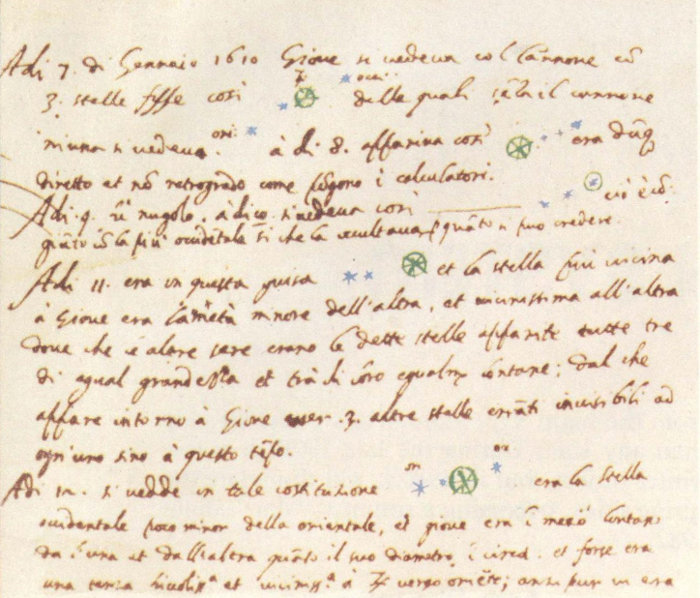 Adi 7. di Gennaio 1610 Giove si vedeva col Cannone cõ
3. stelle fisse così delle quali sẽza il cannone
niuna si vedeva. à di 8. appariua così era dũq
diretto et nõ retrogrado come põgono i calculatori.
Adi. 9. fù nugolo. à di 10. si vedeva così cioè cõ
giũto cõ la più occidẽtale sì che la occultava p quãto si può credere.
Adi 11. era in questa guisa et la stella più vicina
à Giove era la metà minore dell'altra, et vicinissima all'altra
dove che le altre sere erano le dette stelle apparite tutte tre
di equal grandezza et trà di loro equalmẽ lontane; dal che
appare intorno à Giove esser 3. altre stelle errãti invisibili ad
ogn'uno sino à questo tẽpo.
Adi 12. si vedde in tale costituzione era la stella
occidentale poco minor della orientale, et giove era ĩ mezo lontano
da l'una et dall'altra quãto il suo diametro ĩ circa. et forse era
una terza et viciniss.ª à ♃ verso oriẽte; anzi pur vi era